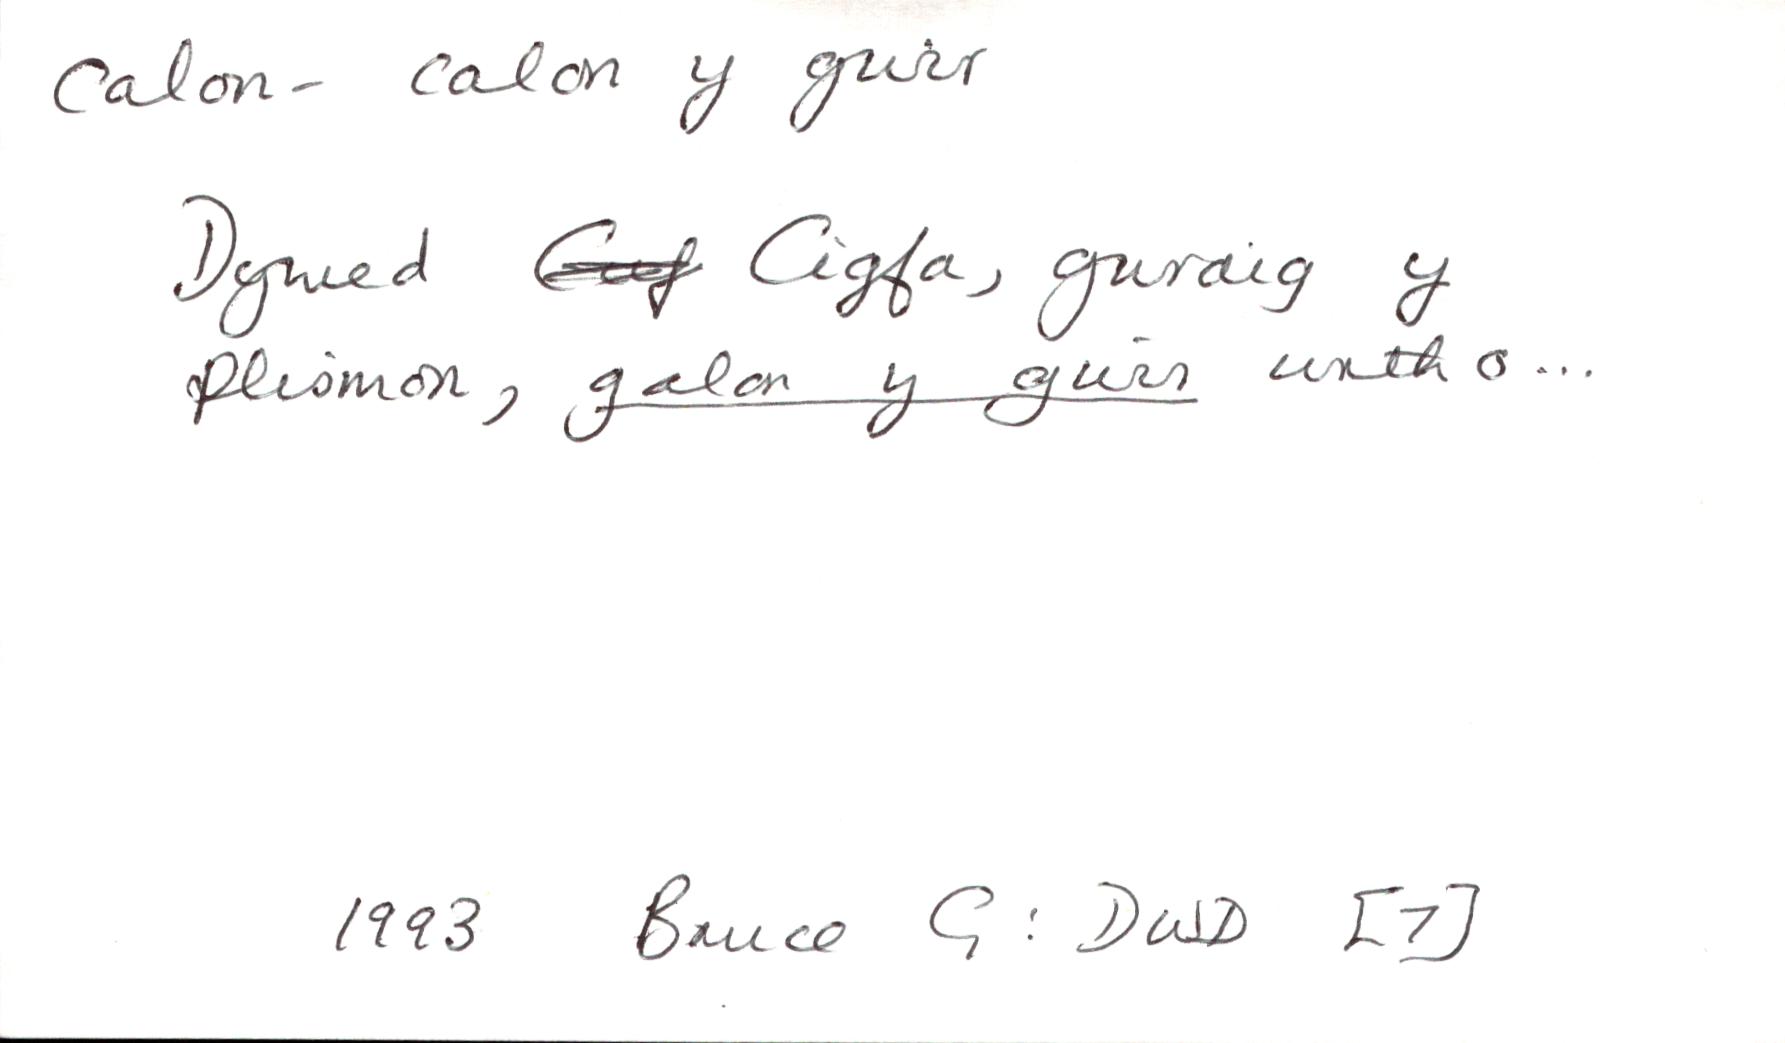 Calon- calon y gwir
Dywed Cigfa, gwraig y
plismon, galon y gwir wrtho...
1993 Bruce G: DWD [7]